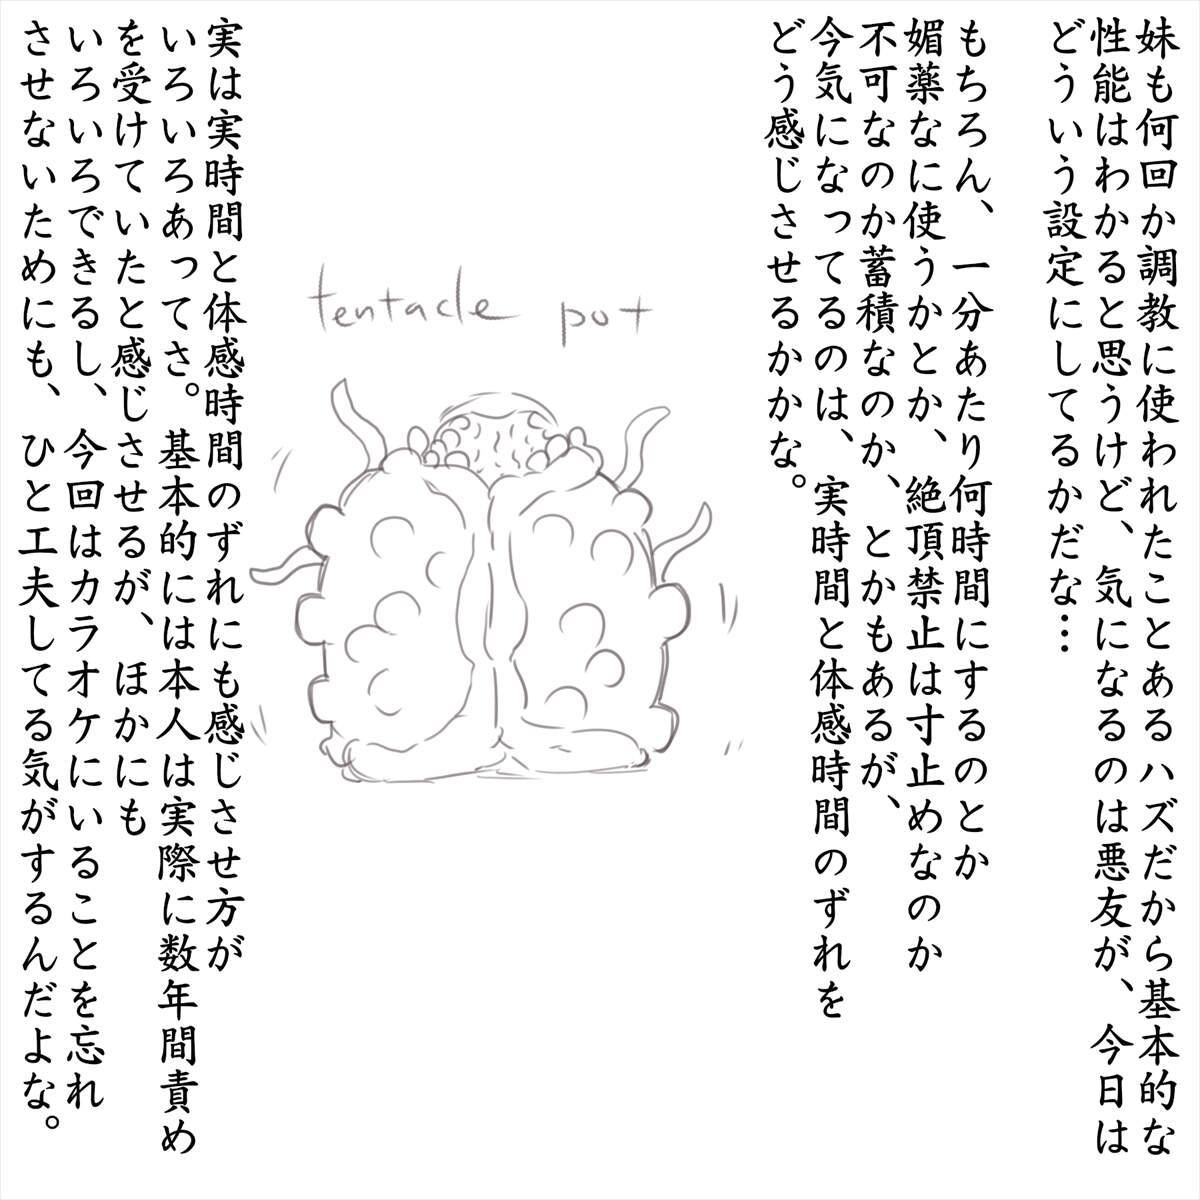 妹も何回か調教に使われたことあるハズだから基本的な
性能はわかると思うけど、気になるのは悪友が、今日は
どういう設定にしてるかだな…
もちろん、一分あたり何時間にするのとか
媚薬なに使うかとか、絶頂禁止は寸止めなのか
不可なのか蓄積なのか、とかもあるが、
今気になってるのは、実時間と体感時間のずれを
どう感じさせるかかな。
tentacle pot
実は実時間と体感時間のずれにも感じさせ方が
いろいろあってさ。基本的には本人は実際に数年間責め
を受けていたと感じさせるが、ほかにも
いろいろできるし、今回はカラオケにいることを忘れ
させないためにも、ひと工夫してる気がするんだよな。